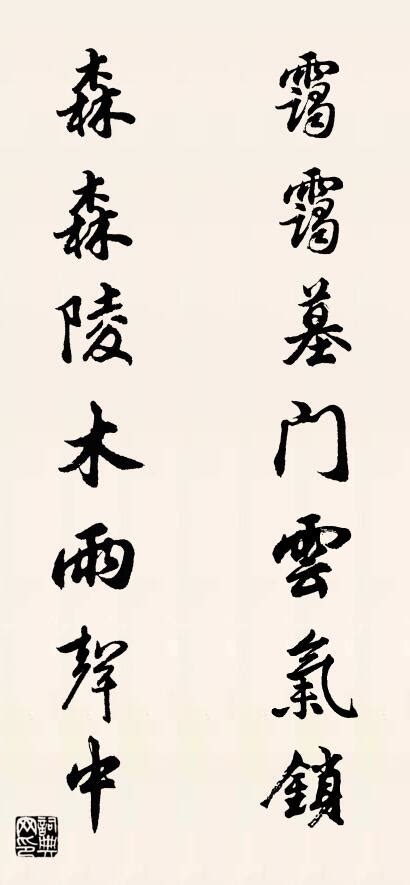 靄靄墓门雲氣鎖
森森陵木雨聲中
詞典网印